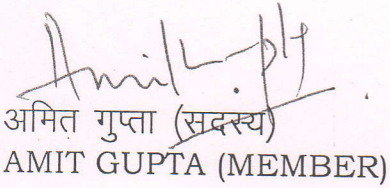 अमित गुप्ता (सदस्य)
AMIT GUPTA (MEMBER)